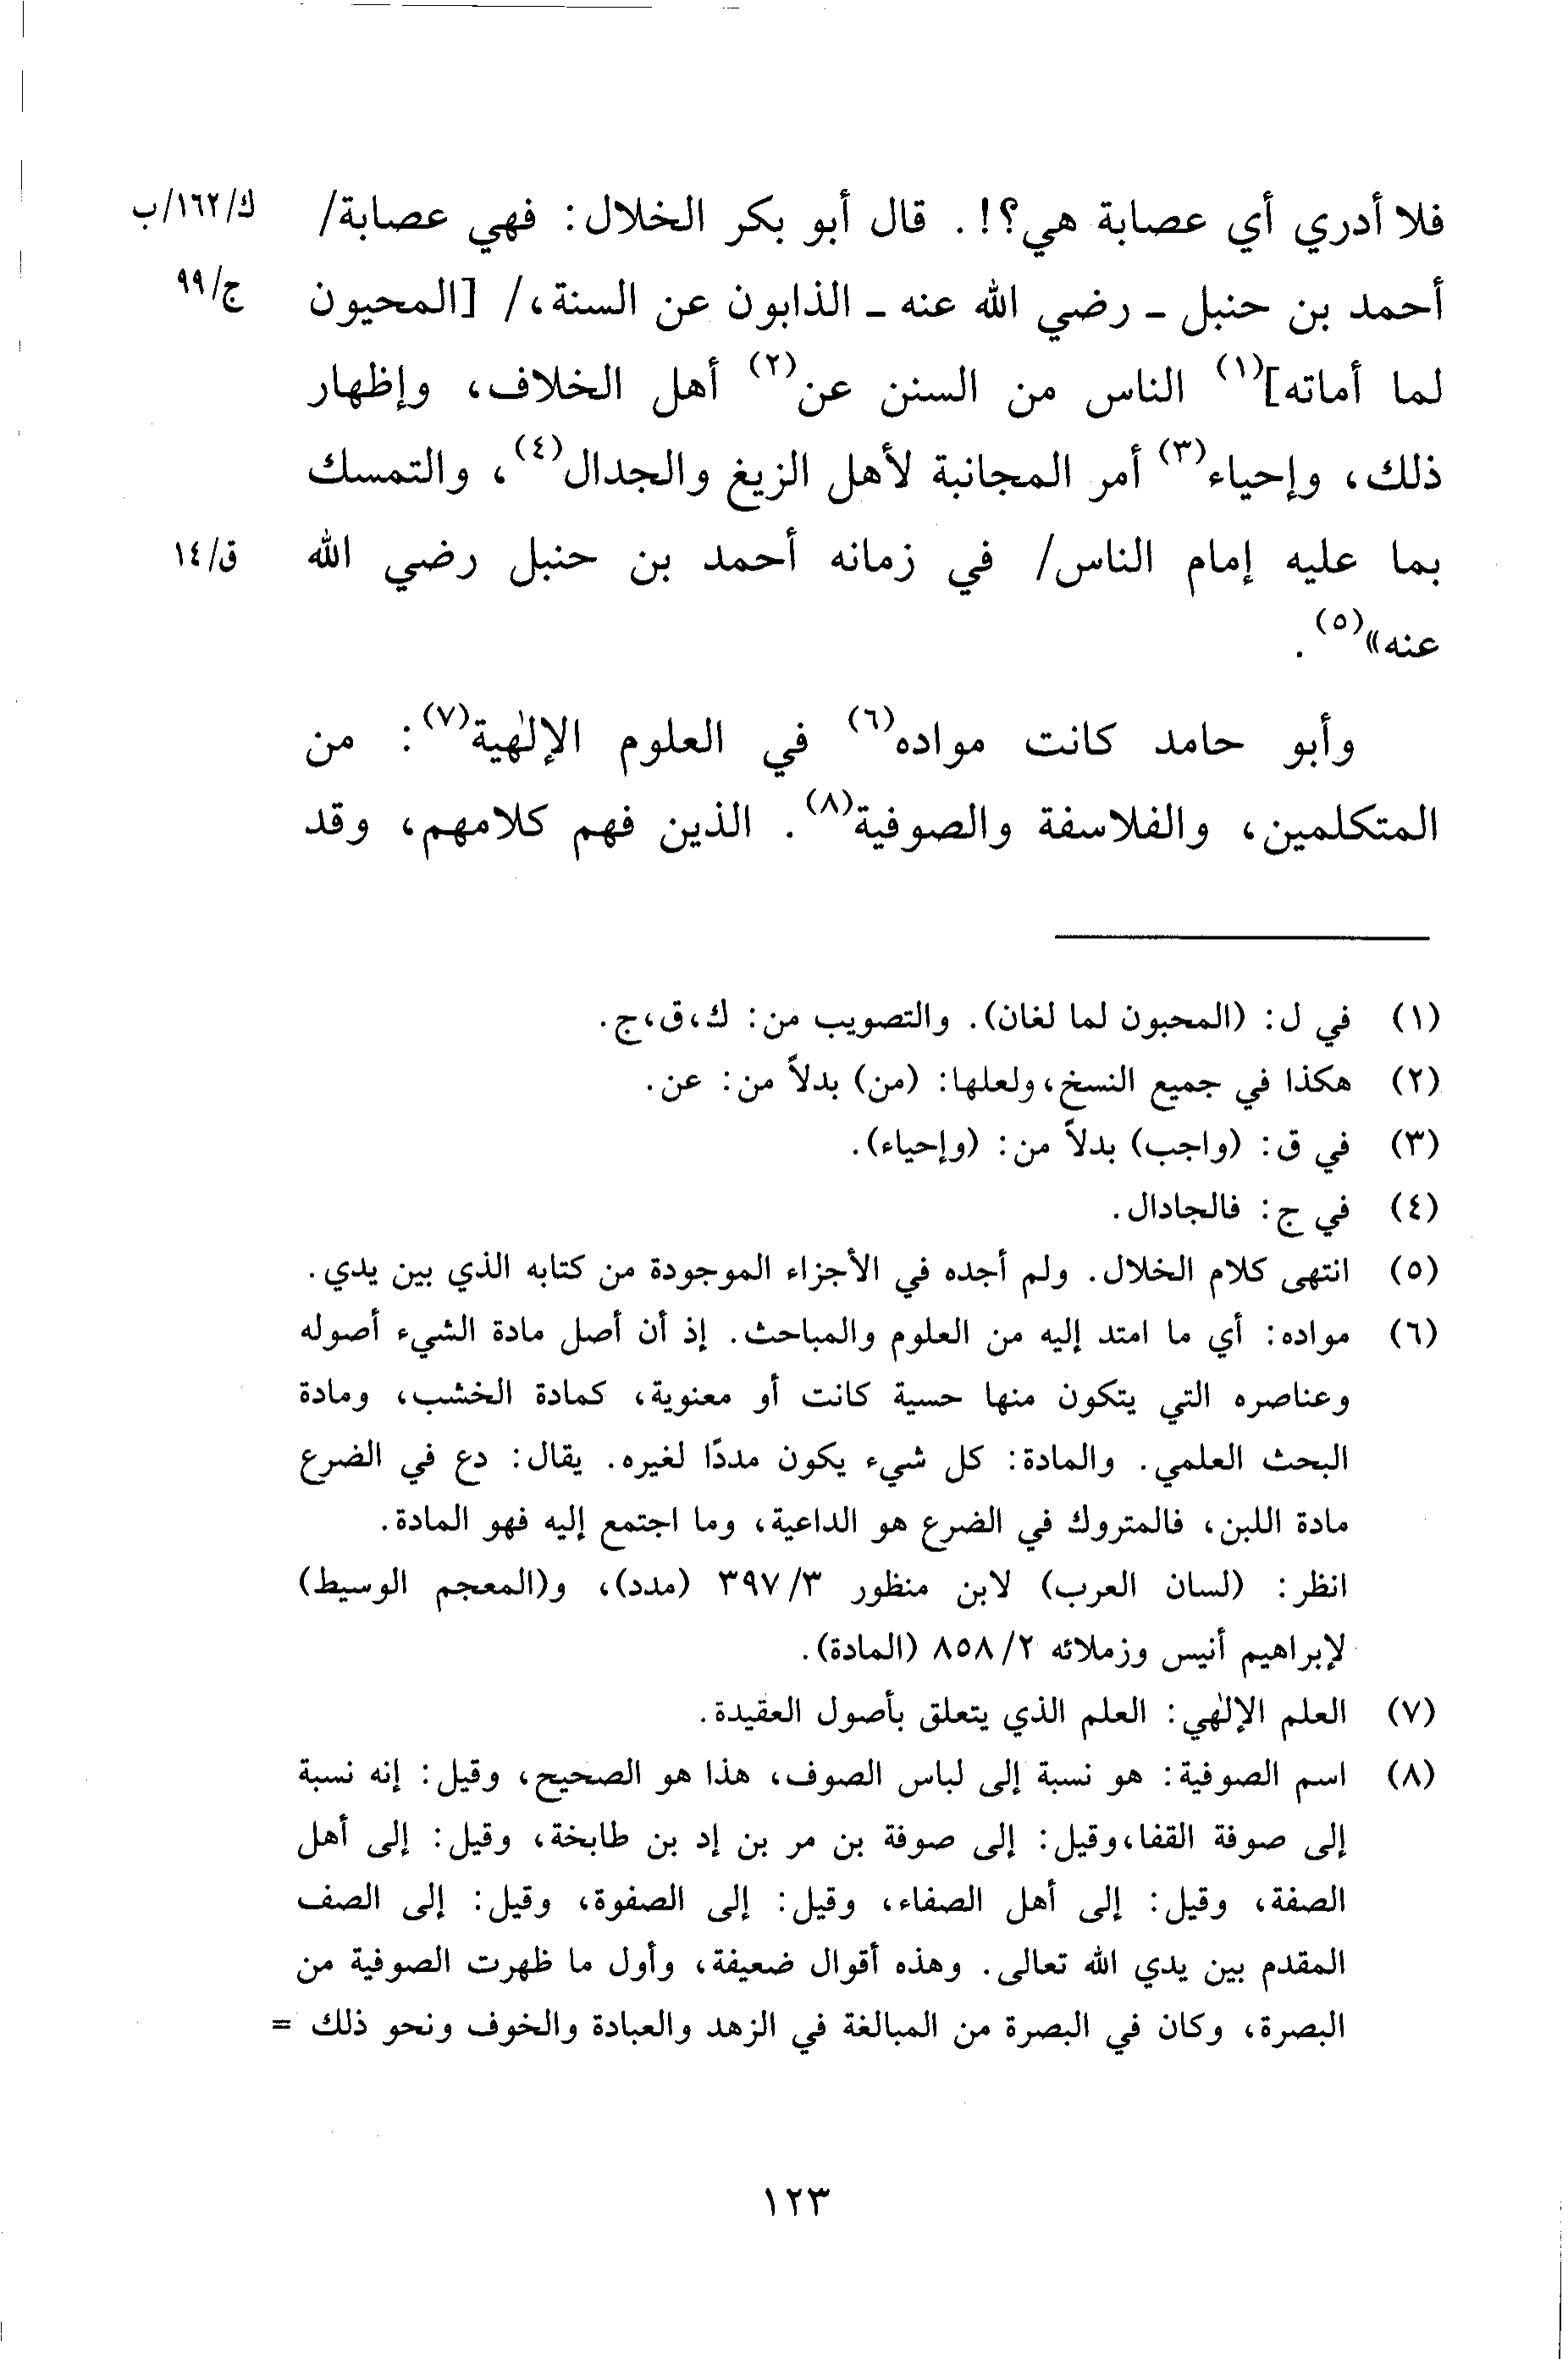 فلا أدري أي عصابة هي؟!. قال أبو بكر الخلال: فهي عصابة/ ك/١٦٢/ب
أحمد بن حنبل ـ رضي الله عنه ـ الذابون عن السنة،/ [المحيون ج/٩٩
لما أماته](١) الناس من السنن عن(٢) أهل الخلاف، وإظهار
ذلك، وإحياء(٣) أمر المجانبة لأهل الزيغ والجدال(٤)، والتمسك
بما عليه إمام الناس/ في زمانه أحمد بن حنبل رضي الله ق/١٤
عنه»(٥).
وأبو حامد كانت مواده(٦) في العلوم الإلٰهية(٧): من
المتكلمين، والفلاسفة والصوفية(٨). الذين فهم كلامهم، وقد
(١) في ل: (المحبون لما لغان). والتصويب من: ك،ق،ج.
(٢) هكذا في جميع النسخ،ولعلها: (من) بدلاً من: عن.
(٣) في ق: (واجب) بدلاً من: (وإحياء).
(٤) في ج: فالجادال.
(٥) انتهى كلام الخلال. ولم أجده في الأجزاء الموجودة من كتابه الذي بين يدي.
(٦) مواده: أي ما امتد إليه من العلوم والمباحث. إذ أن أصل مادة الشيء أصوله
وعناصره التي يتكون منها حسية كانت أو معنوية، كمادة الخشب، ومادة
البحث العلمي. والمادة: كل شيء يكون مددًا لغيره. يقال: دع في الضرع
مادة اللبن، فالمتروك في الضرع هو الداعية، وما اجتمع إليه فهو المادة.
انظر: (لسان العرب) لابن منظور ٣/ ٣٩٧ (مدد)، و(المعجم الوسيط)
لإبراهيم أنيس وزملائه ٢/ ٨٥٨ (المادة).
(٧) العلم الإلٰهي: العلم الذي يتعلق بأصول العقيدة.
(٨) اسم الصوفية: هو نسبة إلى لباس الصوف، هذا هو الصحيح، وقيل: إنه نسبة
إلى صوفة القفا،وقيل: إلى صوفة بن مر بن إد بن طابخة، وقيل: إلى أهل
الصفة، وقيل: إلى أهل الصفاء، وقيل: إلى الصفوة، وقيل: إلى الصف
المقدم بين يدي الله تعالى. وهذه أقوال ضعيفة، وأول ما ظهرت الصوفية من
البصرة، وكان في البصرة من المبالغة في الزهد والعبادة والخوف ونحو ذلك =
١٢٣